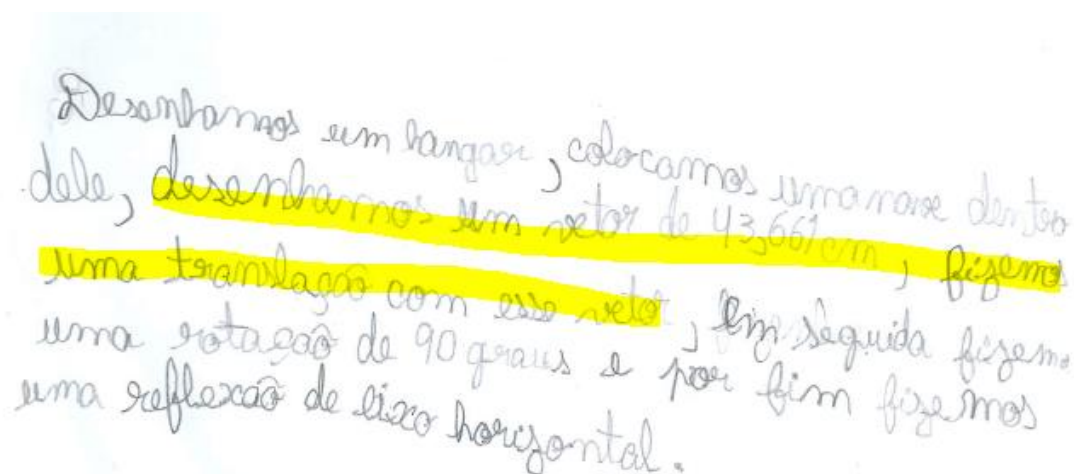 Desenhamos um hangar, colocamos uma nave dentro
dele, desenhamos um vetor de 43,661 cm, fizemos
uma translação com esse vetor, em seguida fizemos
uma rotação de 90 graus e por fim fizemos
uma reflexão de eixo horizontal.